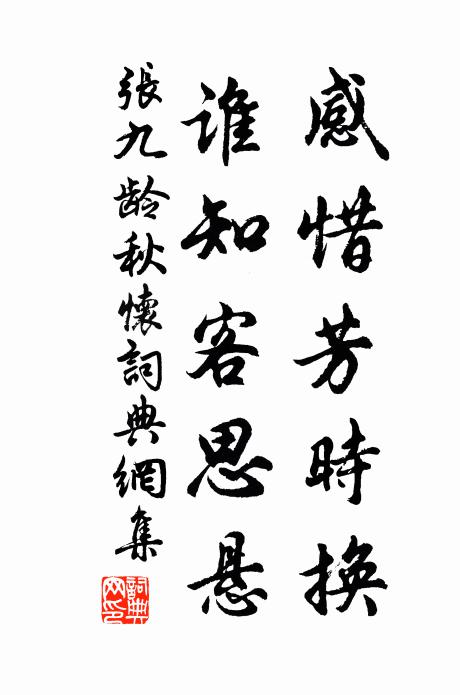 感惜芳時換
谁知客思悬
張九龄秋懷詞典網集
詞典网印